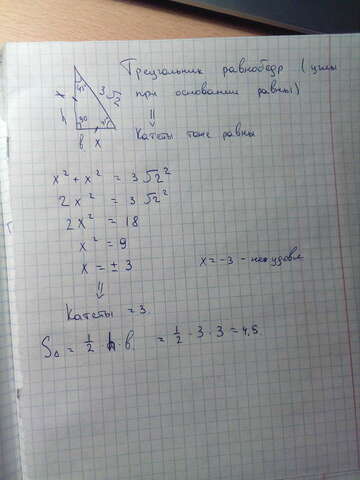 Треугольник равнобедр (углы
при основании равны)
⇓
Катеты тоже равны
45°
x
3√2
h
90
45°
b x
x² + x² = 3√2²
2x² = 3√2²
2x² = 18
x² = 9
x = ± 3
x = -3 - не удовл
⇓
Катеты = 3.
S△ = 1/2 h · b. = 1/2 · 3 · 3 = 4,5